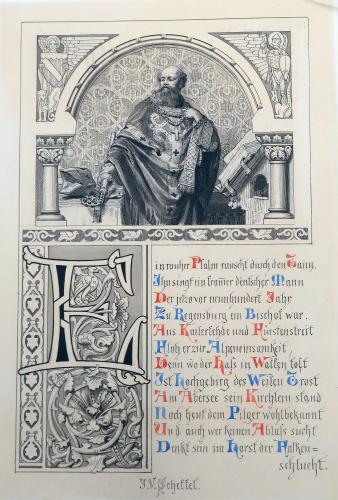 Ein rauher Psalm rauscht durch den Tann,
Ihn singt ein frommer deutscher Mann
Der jetzo vor neunhundert Jahr
Zu Regensburg ein Bischof war.
Aus Kaiserfehde und Fürstenstreit
Floh er zur Alpeneinsamkeit,
Denn wo der Kaß in Wallen tost
Ist Hochgebirg des Weisen Trost
Am Abersee sein Kirchlein stand
Noch heut dem Pilger wohlbekannt
Und auch wer keinen Ablaß sucht
Denkt sein im Horst der Falken=
schlucht.
J.V. Scheffel.